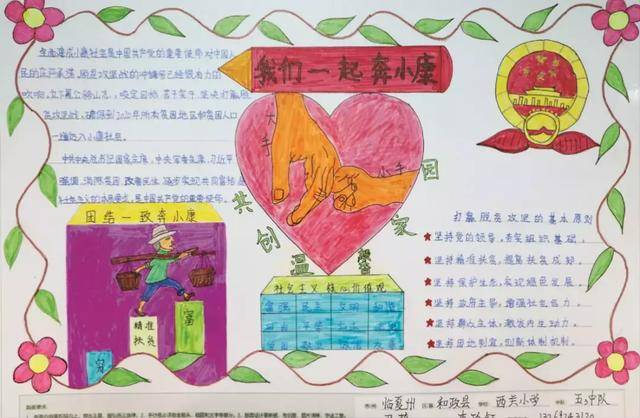 我们一起奔小康
全面建成小康社会是中国共产党的重要使命对中国人
民的庄严承诺,脱贫攻坚战的冲锋号已经吹响
吹响,立下愚公移山志,咬定目标,苦干实干,坚决打赢脱
贫攻坚战,确保到2020年所有贫困地区和贫困人口
一道迈入小康社会。
中共中央总书记国家主席,中央军委主席,习近平
强调,消除贫困,改善民生,逐步实现共同富裕,是
社会主义的本质要求,是中国共产党的重要使命。
团结一致奔小康
精准
扶贫
富
穷
大手
小手
共创温馨家园
社会主义核心价值观
富强 民主 文明 和谐
打赢脱贫攻坚的基本原则
坚持党的领导,夯实组织基础。
坚持精准扶贫,提高扶贫成效
坚持保护生态,实现绿色发展。
坚持政府主导,增强社会合力。
坚持群众主体,激发内生动力。
坚持因地制宜,创新体制机制。
临夏州 和政县 西关小学 五3中队